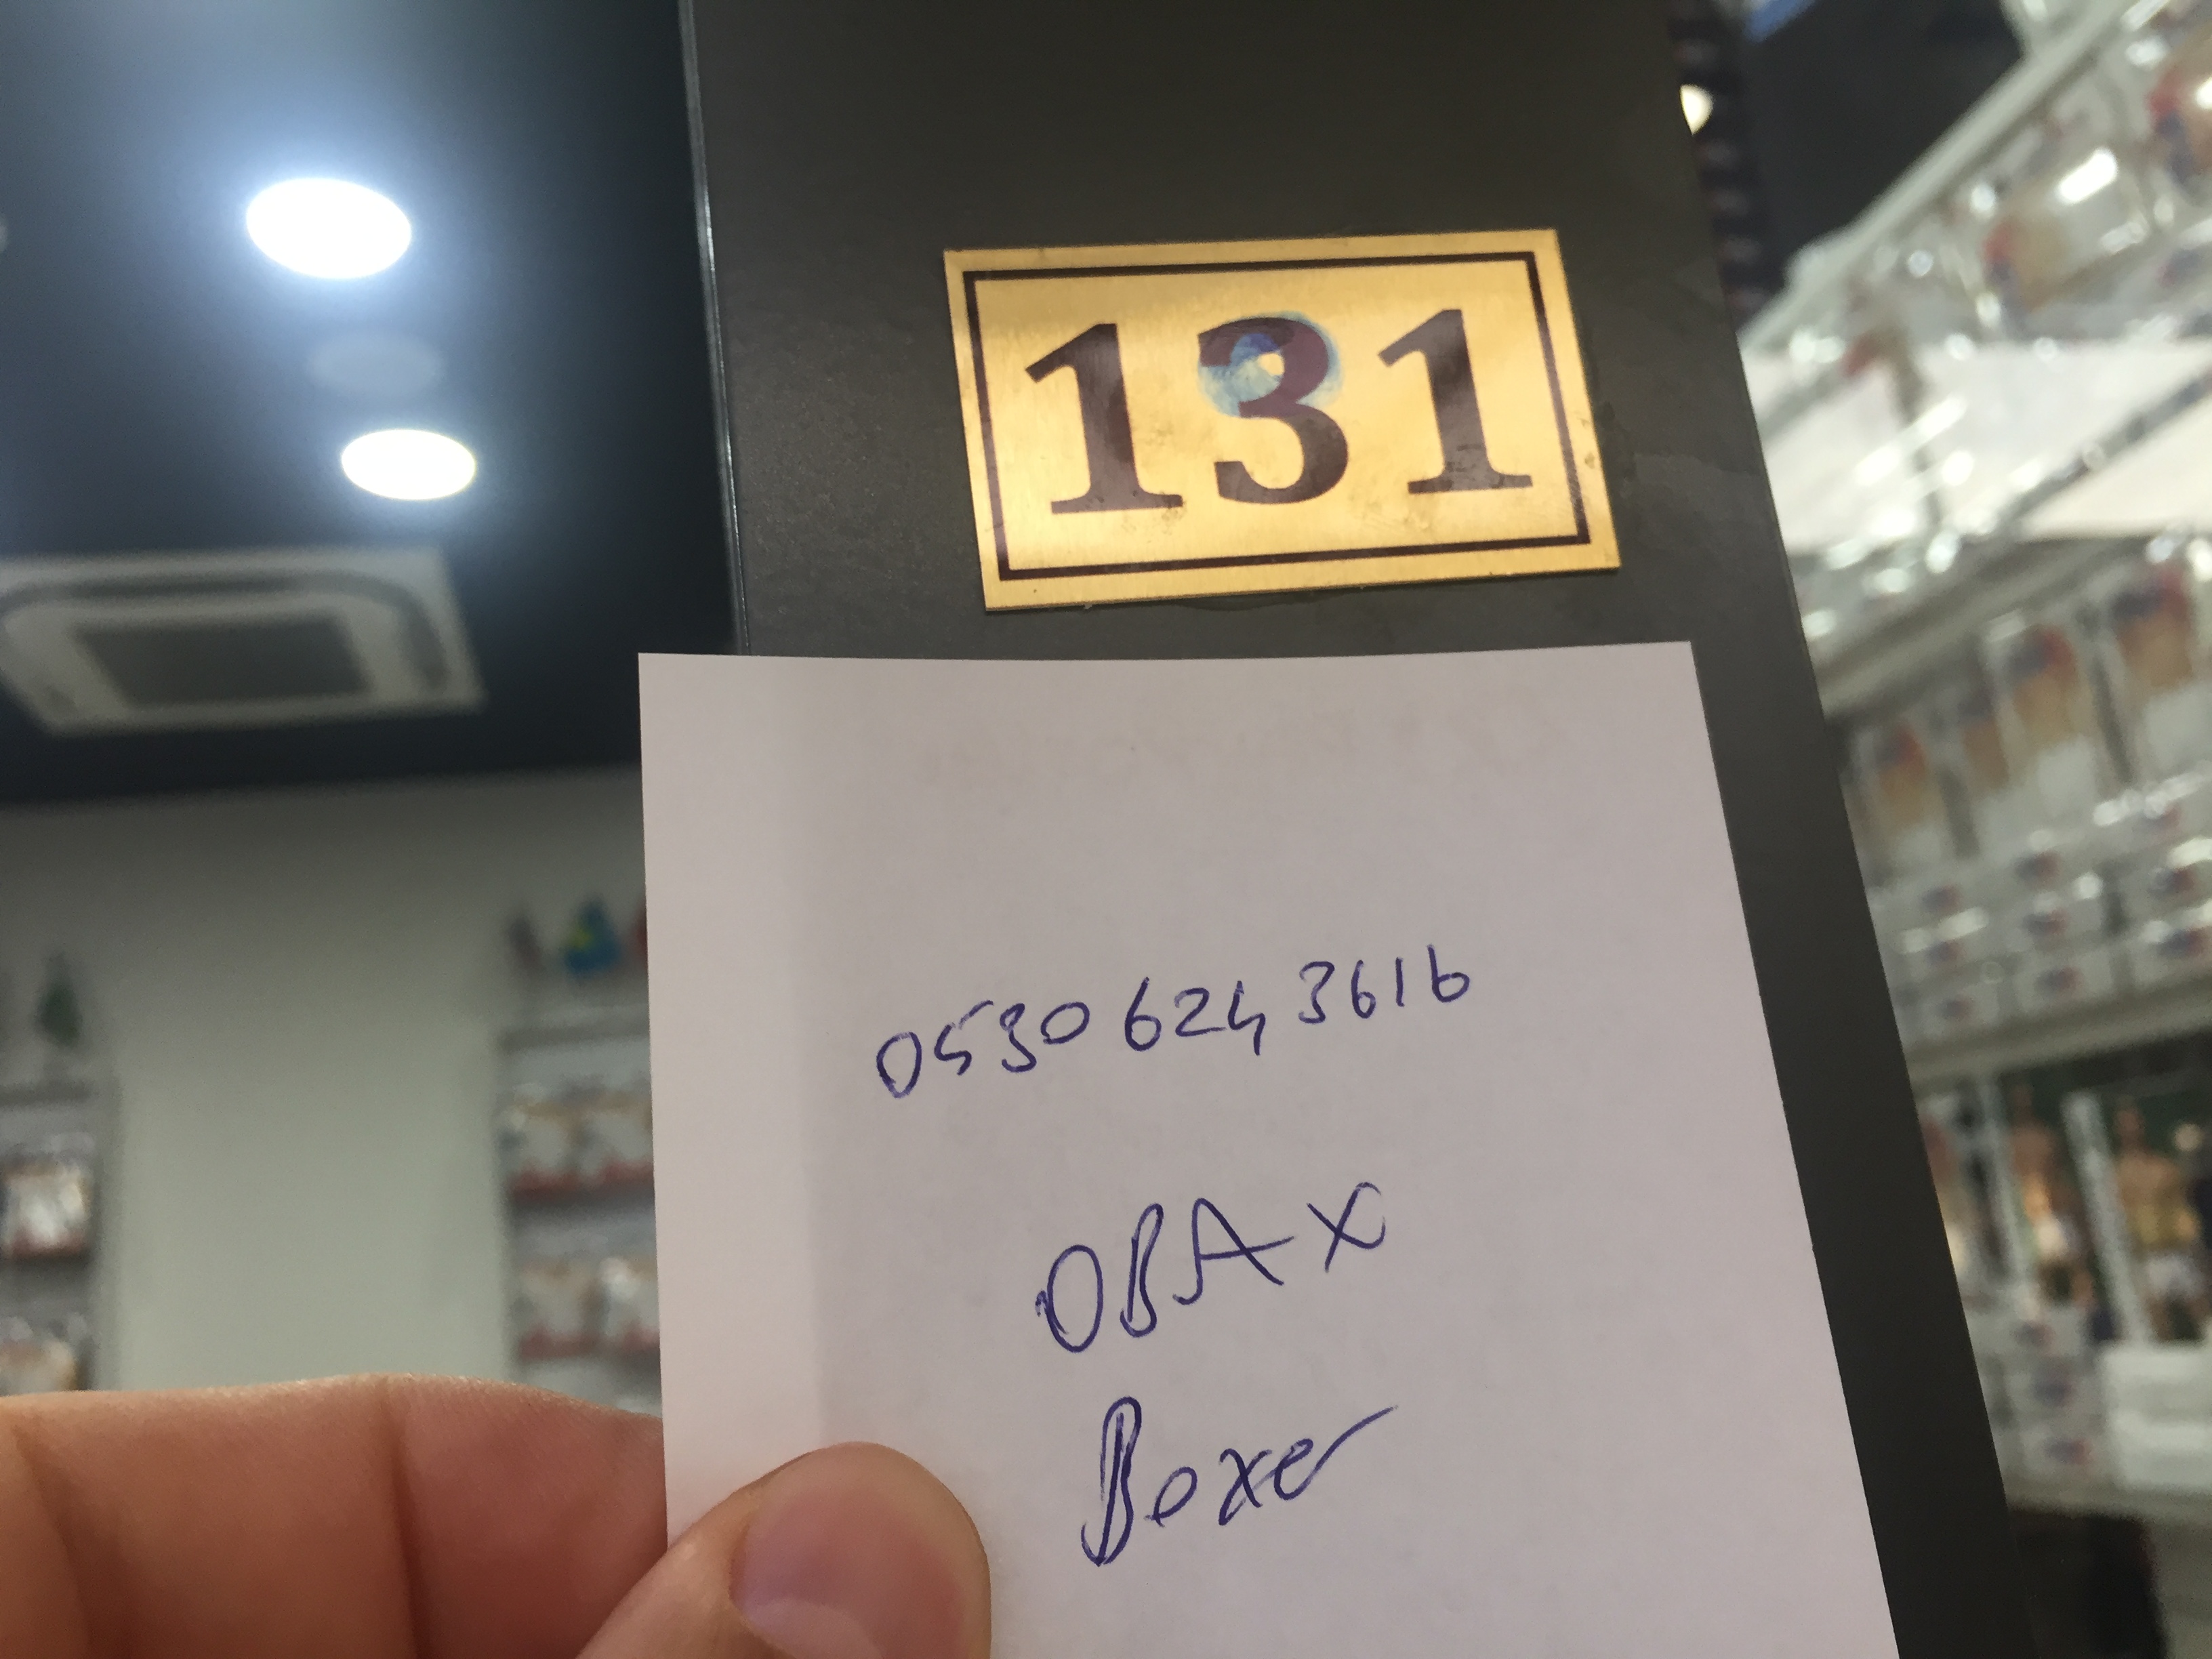 131
0530 624 3616
OBAX
Boxer